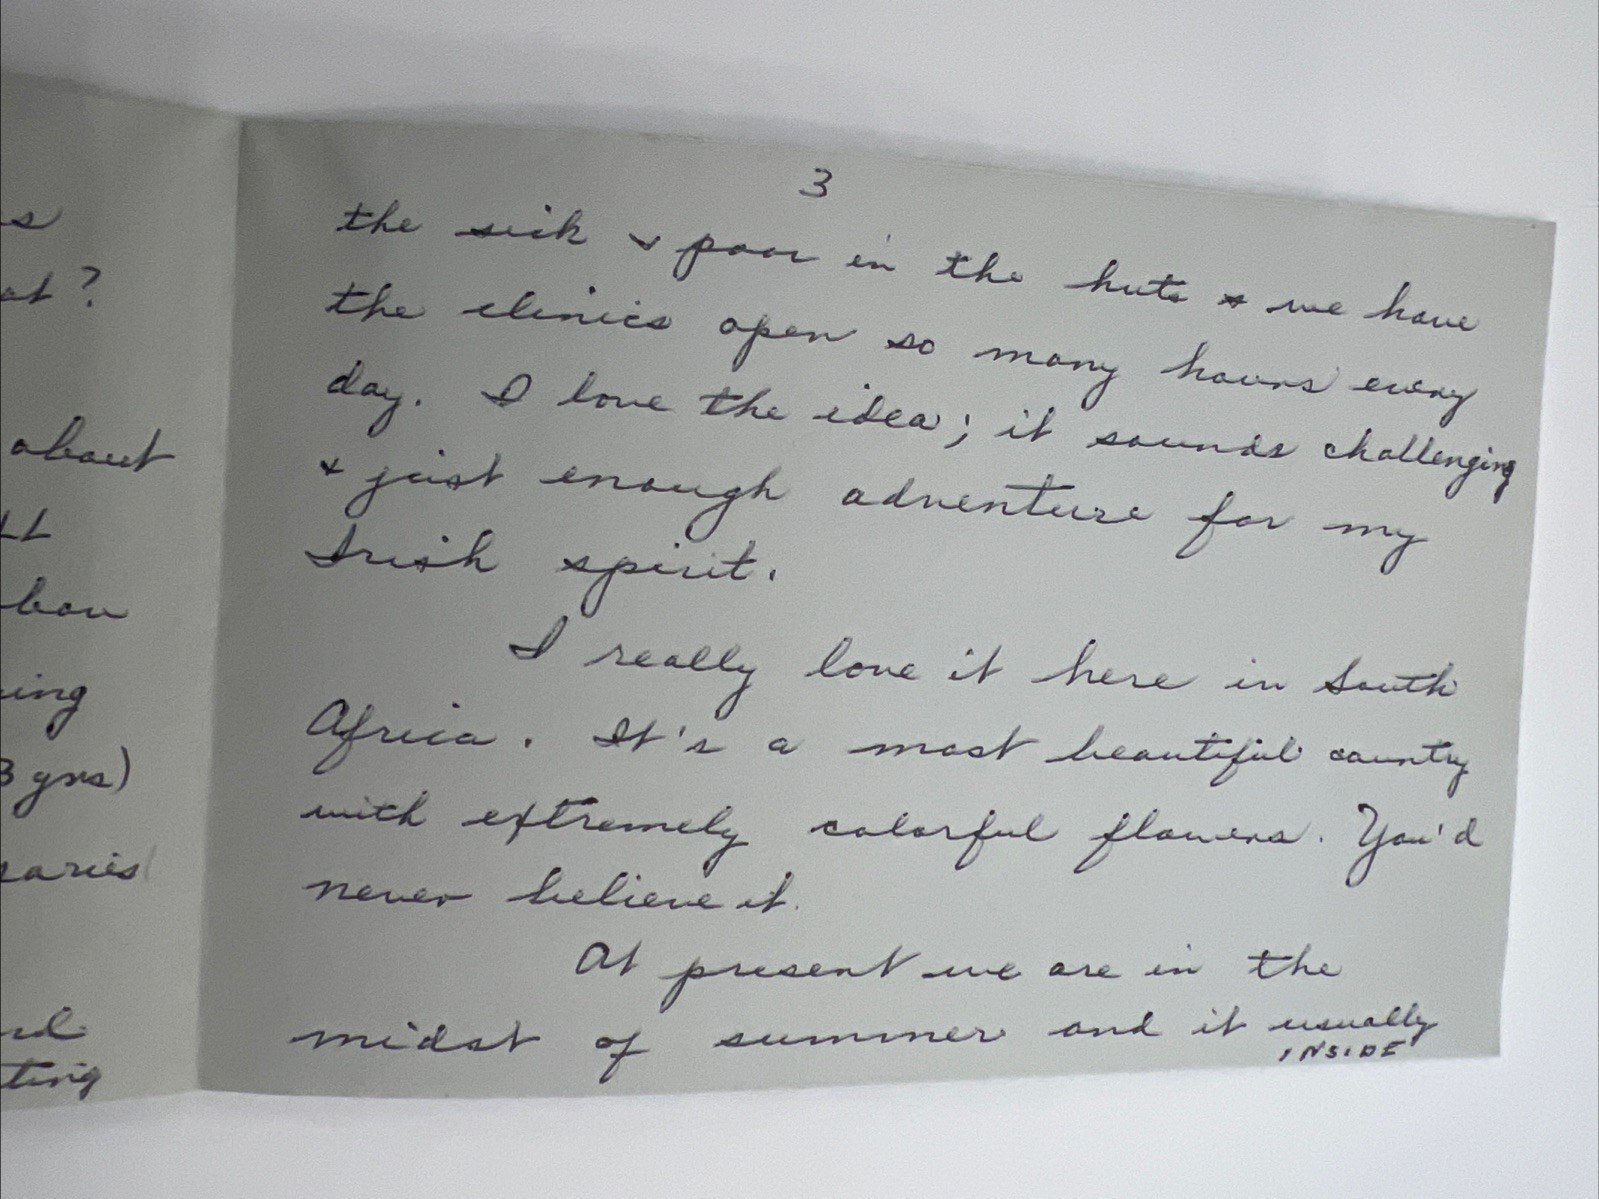 s
at?
about
bou
ing
3 yrs)
saries
ting
3
the sick & poor in the huts & we have
the clinics open so many hours every
day. I love the idea; it sounds challenging
& just enough adventure for my
Irish spirit.
I really love it here in South
Africa. It's a most beautiful country
with extremely colorful flowers. You'd
never believe it.
At present we are in the
midst of summer and it usually
INSIDE